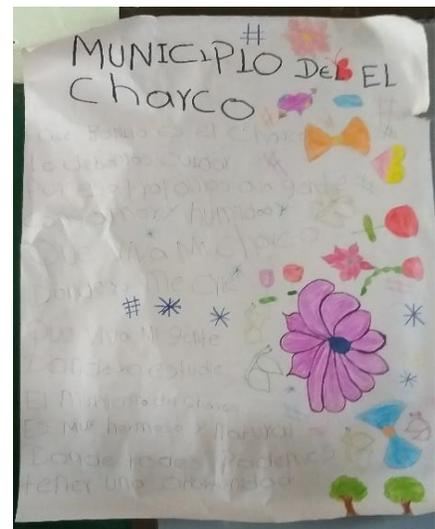 MUNICIPIO DEL EL
Charco
Que Bonito es el Charco
lo debemos cuidar
humilda y
Que viva Mi charco
Donde Me crie
Que viva Mi gente
Donde estudie
El Municipio del charco
Es Muy hermoso y Natural
Donde todos Podemos
tener una oportunidad